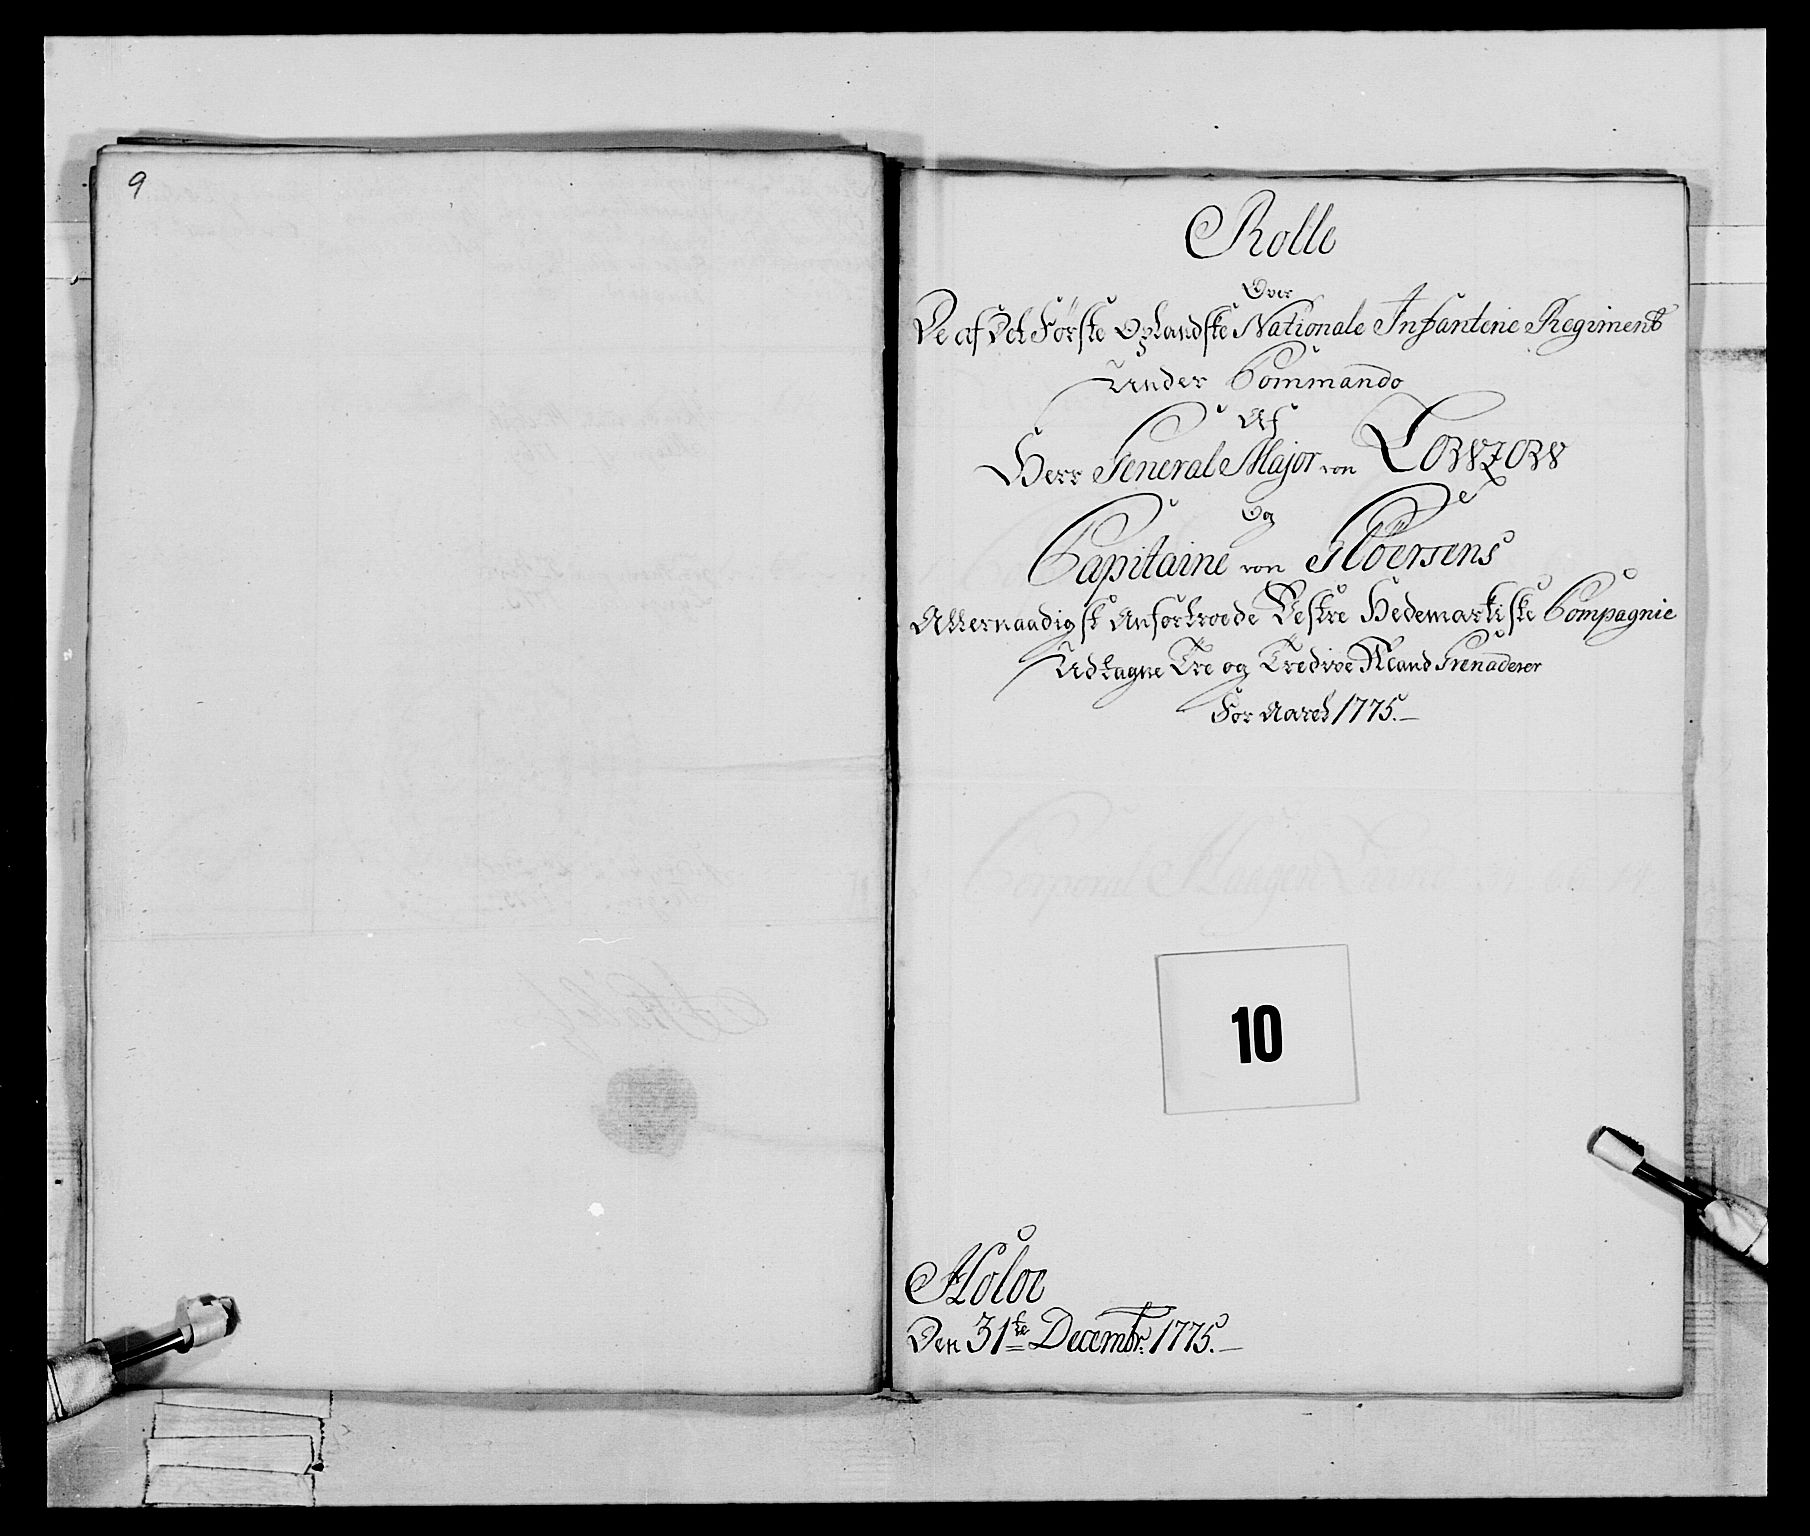 9
Rolle
Over
De af Det Förske Oplandske Nationale Infanterie Regiment
Under Commando
Af
Herr General Major von Lowzow
Og
Capitaine von Röersens
Allernaadigst Anfortroede Vestre Hedemarkiske Compagnie
Udtagne Tre og Tredive Mand Grenaderer
For Aaret 1775.
10
Den 31te Decembr: 1775.